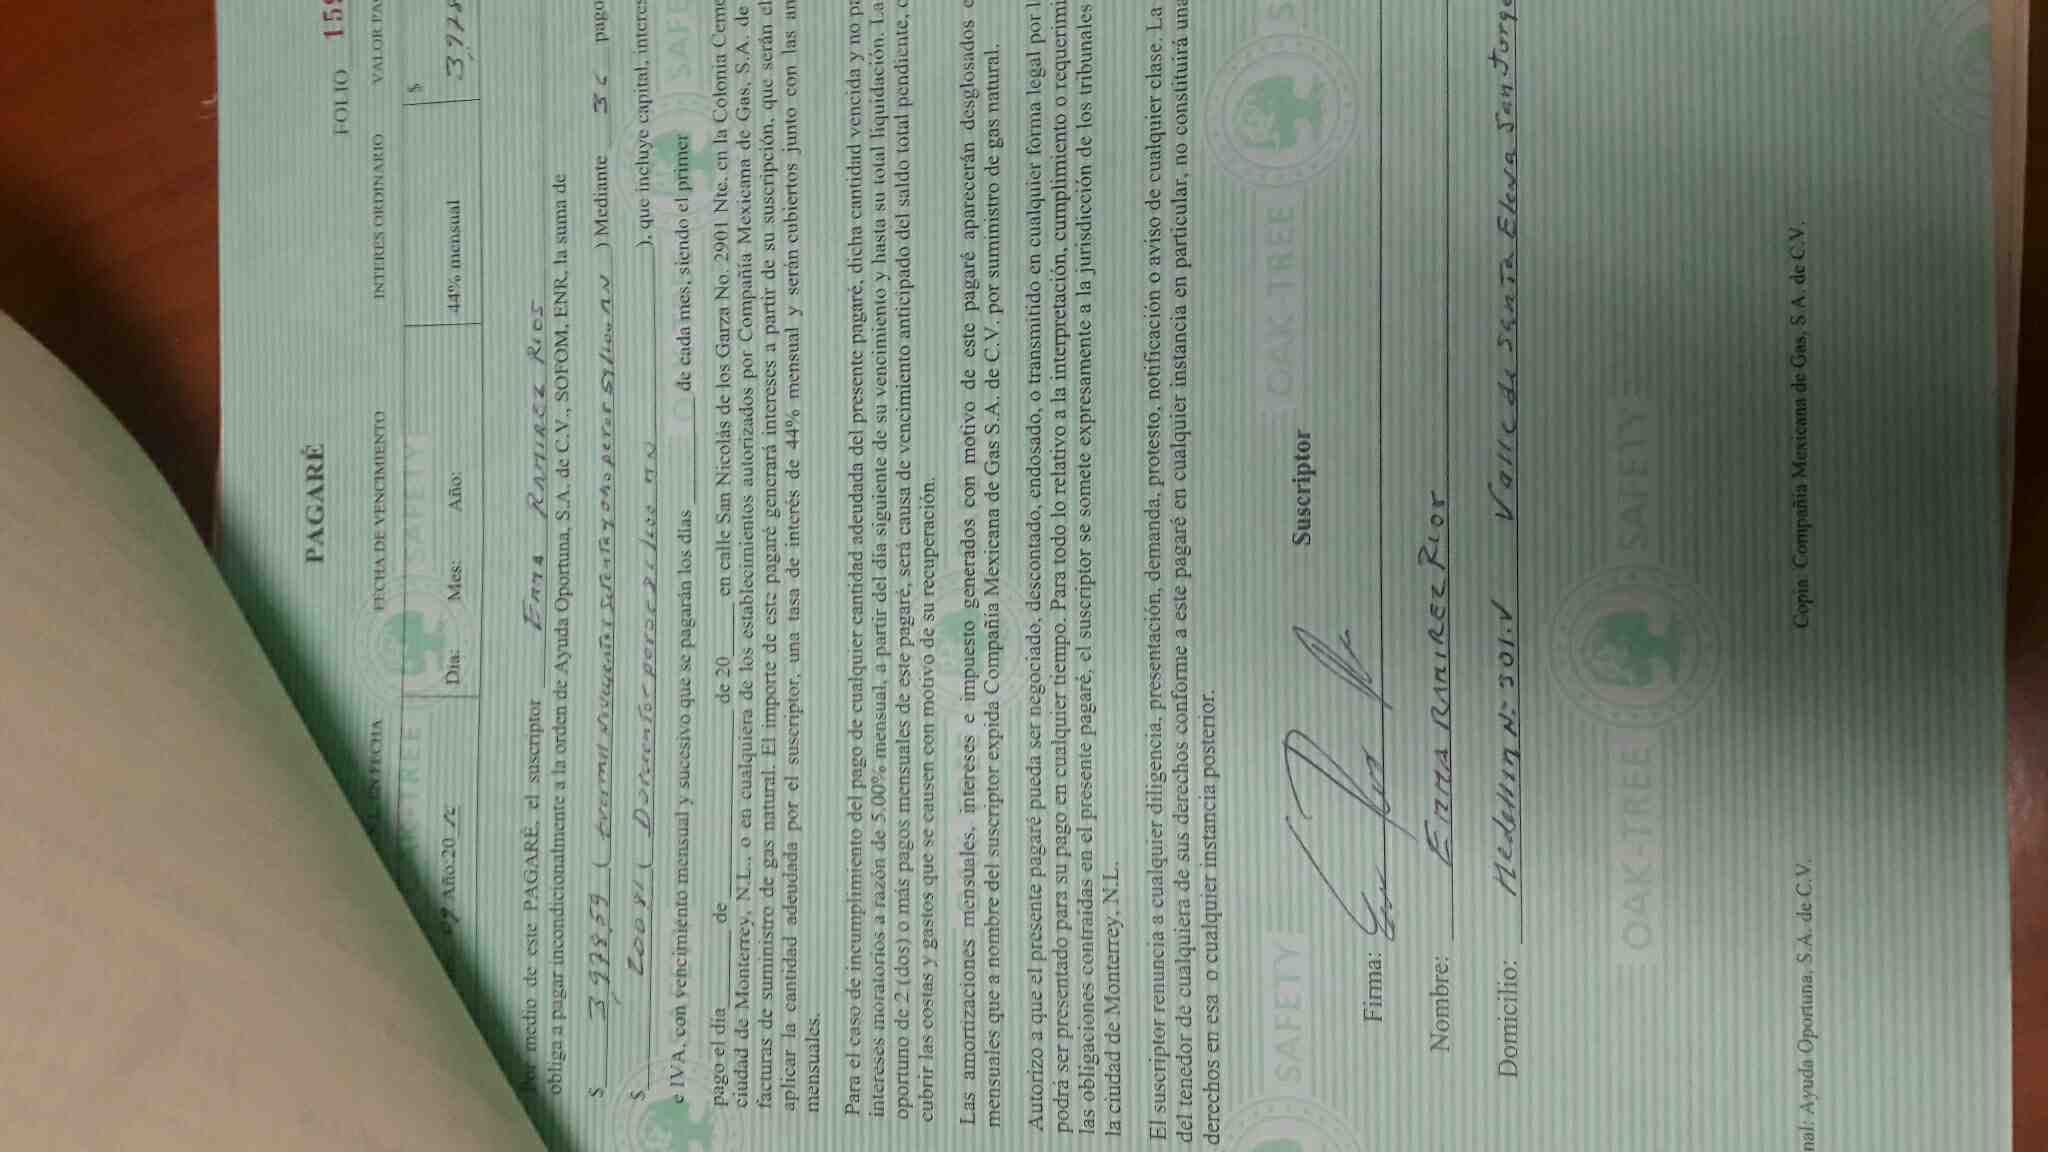 PAGARÉ
FOLIO 159
EN FECHA FECHA DE VENCIMIENTO INTERES ORDINARIO VALOR PA
09 Año:20 Dia: Mes: Año: 44% mensual $ 3,978
Por medio de este PAGARÉ, el suscriptor Emma RAMIREZ RIOS
obliga a pagar incondicionalmente a la orden de Ayuda Oportuna, S.A. de C.V., SOFOM, ENR, la suma de
$ 3,978.59 ( ) Mediante 36 pago
$ ( ), que incluye capital, interes
e IVA, con vencimiento mensual y sucesivo que se pagarán los días de cada mes, siendo el primer
pago el día de de 20 en calle San Nicolás de los Garza No. 2901 Nte. en la Colonia Ceme
ciudad de Monterrey, N.L., o en cualquiera de los establecimientos autorizados por Compañía Mexicana de Gas., S.A. de
facturas de suministro de gas natural. El importe de este pagaré generará intereses a partir de su suscripción, que serán el
aplicar la cantidad adeudada por el suscriptor, una tasa de interés de 44% mensual y serán cubiertos junto con las an
mensuales.
Para el caso de incumplimiento del pago de cualquier cantidad adeudada del presente pagaré, dicha cantidad vencida y no pa
intereses moratorios a razón de 5.00% mensual, a partir del día siguiente de su vencimiento y hasta su total liquidación. La
oportuno de 2 (dos) o más pagos mensuales de este pagaré, será causa de vencimiento anticipado del saldo total pendiente,
cubrir las costas y gastos que se causen con motivo de su recuperación.
Las amortizaciones mensuales, intereses e impuesto generados con motivo de este pagaré aparecerán desglosados e
mensuales que a nombre del suscriptor expida Compañía Mexicana de Gas S.A. de C.V. por suministro de gas natural.
Autorizo a que el presente pagaré pueda ser negociado, descontado, endosado, o transmitido en cualquier forma legal por l
podrá ser presentado para su pago en cualquier tiempo. Para todo lo relativo a la interpretación, cumplimiento o requerimi
las obligaciones contraidas en el presente pagaré, el suscriptor se somete expresamente a la jurisdicción de los tribunales
la ciudad de Monterrey, N.L.
El suscriptor renuncia a cualquier diligencia, presentación, demanda, protesto, notificación o aviso de cualquier clase. La
del tenedor de cualquiera de sus derechos conforme a este pagaré en cualquier instancia en particular, no constituirá una
derechos en esa o cualquier instancia posterior.
SAFETY OAK-TREE
Suscriptor
Firma:
Nombre: Emma RAMIREZ Rios
Domicilio: Medellin Nº 301.V Valle de Santa Elena San Jorge
OAK-TREE SAFETY
nal: Ayuda Oportuna, S.A. de C.V. Copia Compañía Mexicana de Gas, S.A. de C.V.